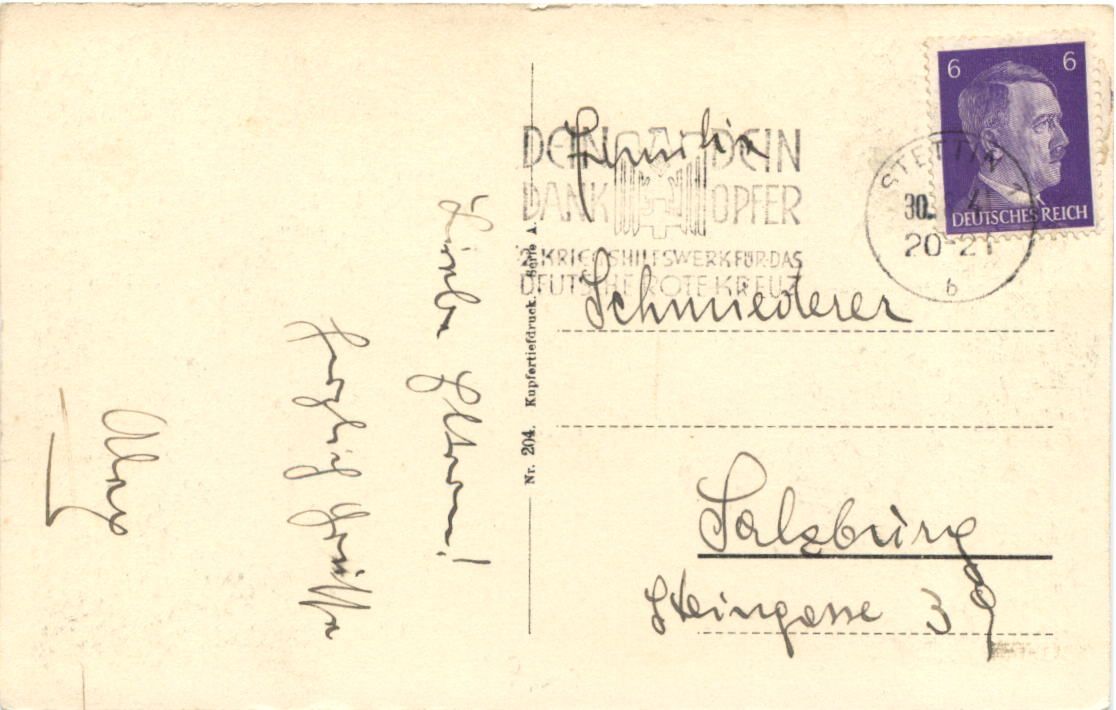 Liebe Eltern!
Herzlich Grüße
Nr. 204. Kupfertiefdruck. Serie A.
6 6
DEUTSCHES REICH
STETTIN
30. 4
20-21
b
DEIN DEIN
DANK OPFER
2. KRIEGSHILFSWERK FÜR DAS
DEUTSCHE ROTE KREUZ
Familie
Schmiederer
Salzburg
Steingasse 38